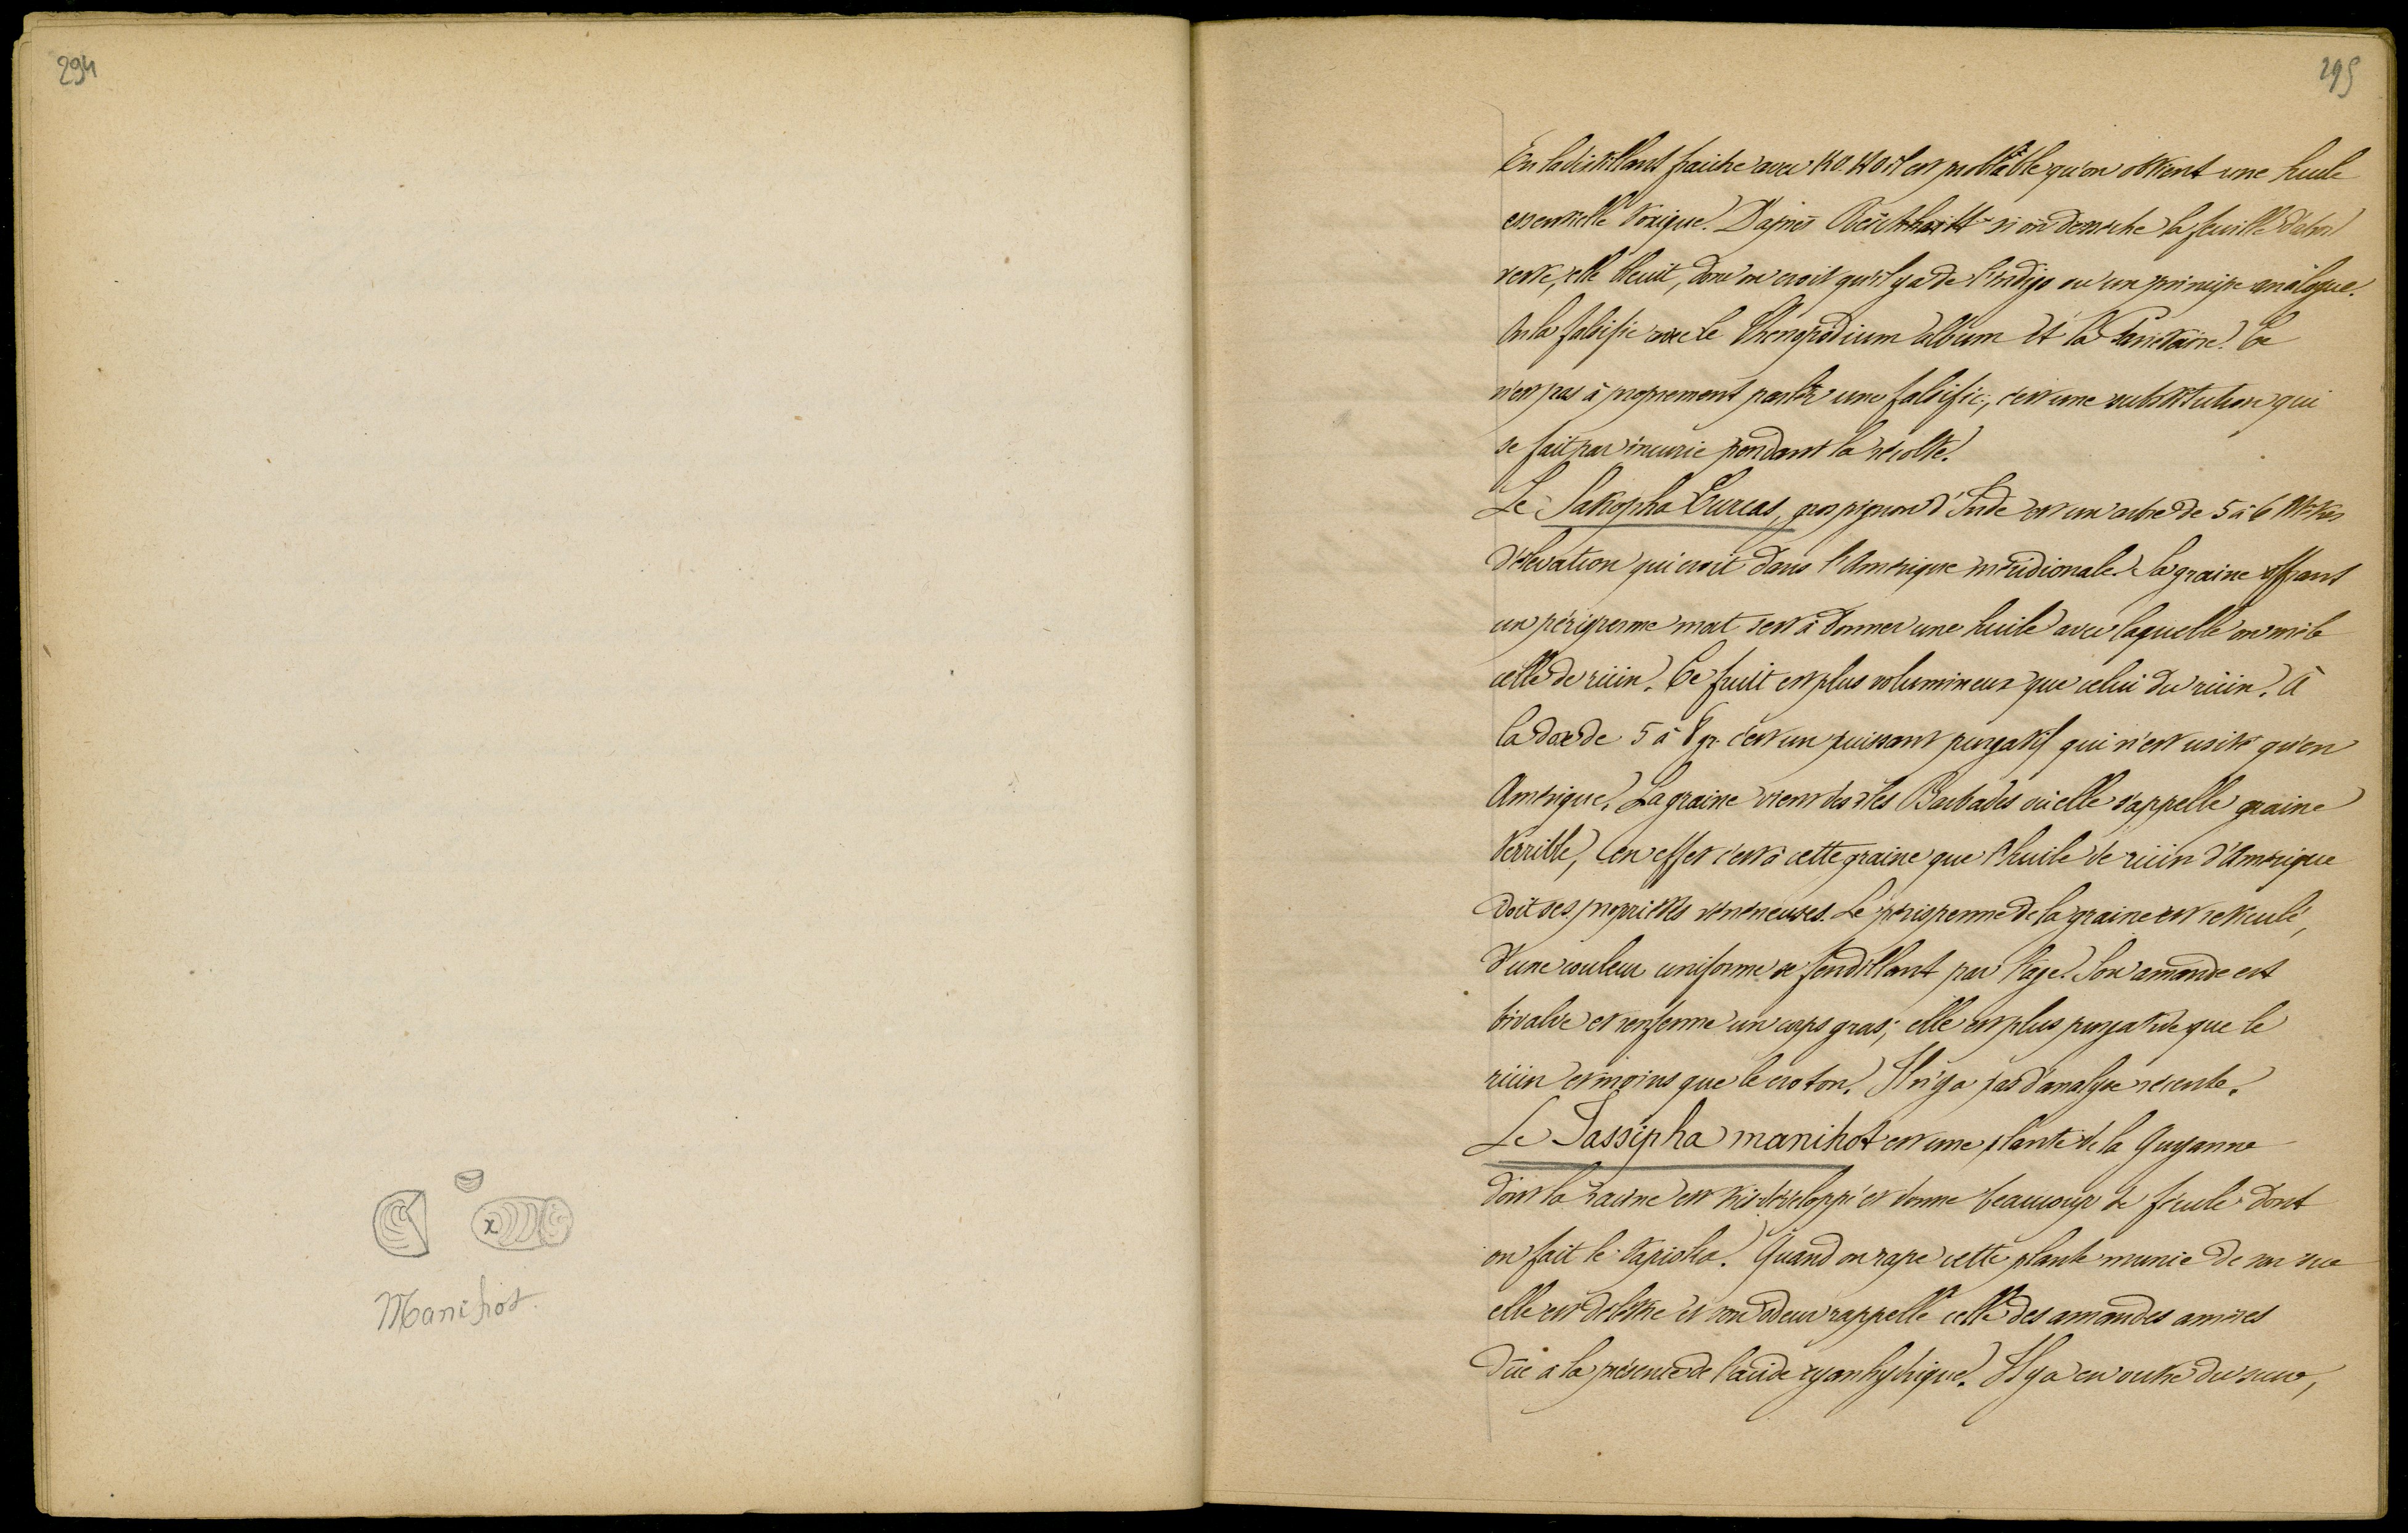 294
Manihot.
295
En la distillant fraiche avec KO.HO il est probable qu'on obtient une huile
essentielle toxique. D'après si on dessèche la feuille d'abord
verte, elle bleuit, donc on croit qu'il y a de l'indigo ou un principe analogue.
On la falsifie avec le Chenopodium album et la Pariétaire. Ce
n'est pas à proprement parler une falsific:, c'est une substitution qui
se fait par incurie pendant la récolte.
Le Jatropha Curcas, gros pignon d'Inde est un arbre de 5 à 6 Mètres
d'élevation qui croit dans l'Amérique méridionale. La graine offrant
un périsperme mat sert à donner une huile avec laquelle on mêle
celle de ricin. Ce fruit est plus volumineux que celui du ricin. à
la dose de 5 à 8 gr. c'est un puissant purgatif qui n'est usité qu'en
Amérique. La graine vient des iles Barbades où elle s'appelle graine
terrible, en effet c'est à cette graine que l'huile de ricin d'Amérique
doit ses propriétés vénéneuses. Le périsperme de la graine est réticulé,
d'une couleur uniforme se fendillant par l'age. Son amande est
bivalve et renferme un corps gras; elle est plus purgative que le
ricin et moins que le croton. Il n'y a pas d'analyse récente.
Le Jassipha manihot est une plante de la Guyanne
dont la racine est très développé et donne beaucoup de fécule dont
on fait le tapioka. Quand on rape cette plante munie de son suc
elle est délétère et son odeur rappelle celle des amandes amères
dûe à la présence de l'acide cyanhydrique. Il y a en outre du sucre,